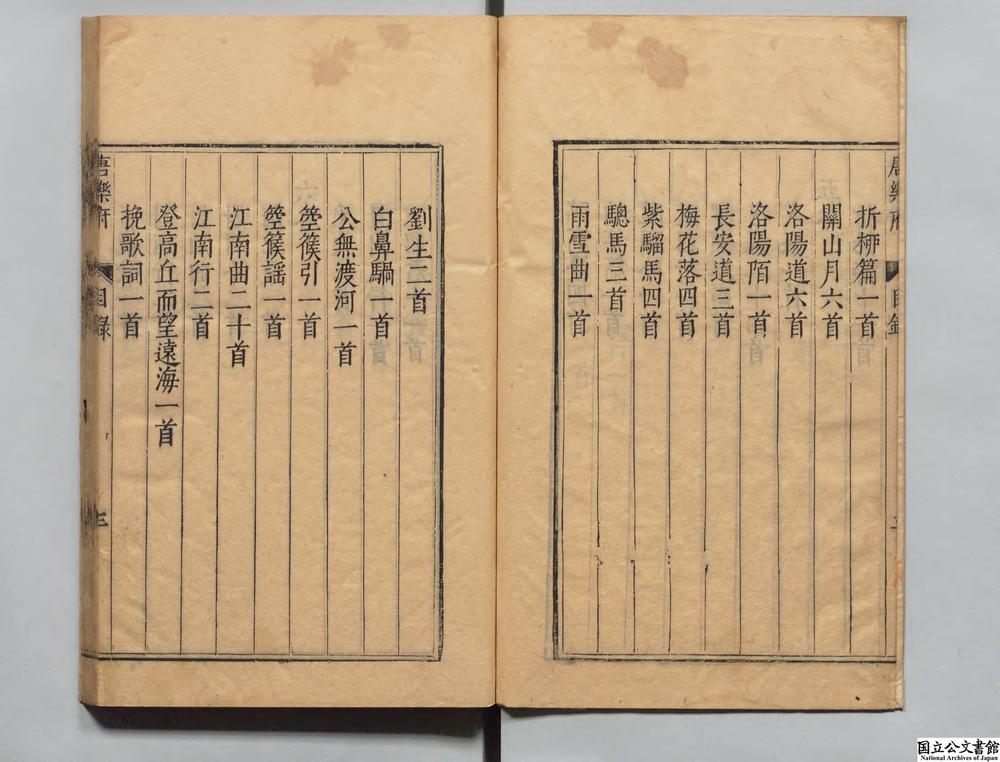 唐樂府
目錄
三
折栁篇一首
關山月六首
洛陽道六首
洛陽陌一首
長安道三首
梅花落四首
紫騮馬四首
驄馬三首
雨雪曲一首
劉生二首
白鼻騧一首
公無渡河一首
箜篌引一首
箜篌謡一首
江南曲二十首
江南行二首
登高丘而望遠海一首
挽歌詞一首
唐樂府
目錄
三
国立公文書館
National Archives of Japan